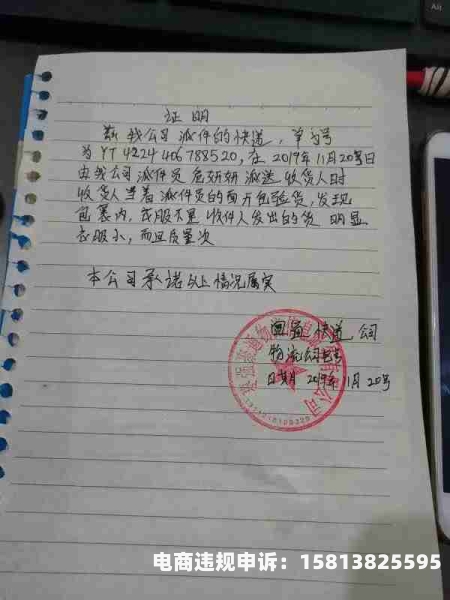 证明
兹 我公司 派件的快递，单号
为 YT 4224 406 788520，在 2019年 11月20号日
由我公司 派件员 危妍妍 派送 收货人时
收货人当着派件员的面方包验货，发现
包裹内，衣服不是 收件人发出的货 明显
衣服小，而且质量次
本公司承诺以上情况属实
圆通 快递 公司
物流公司
日期 2019年11月20号
电商违规申诉：15813825595